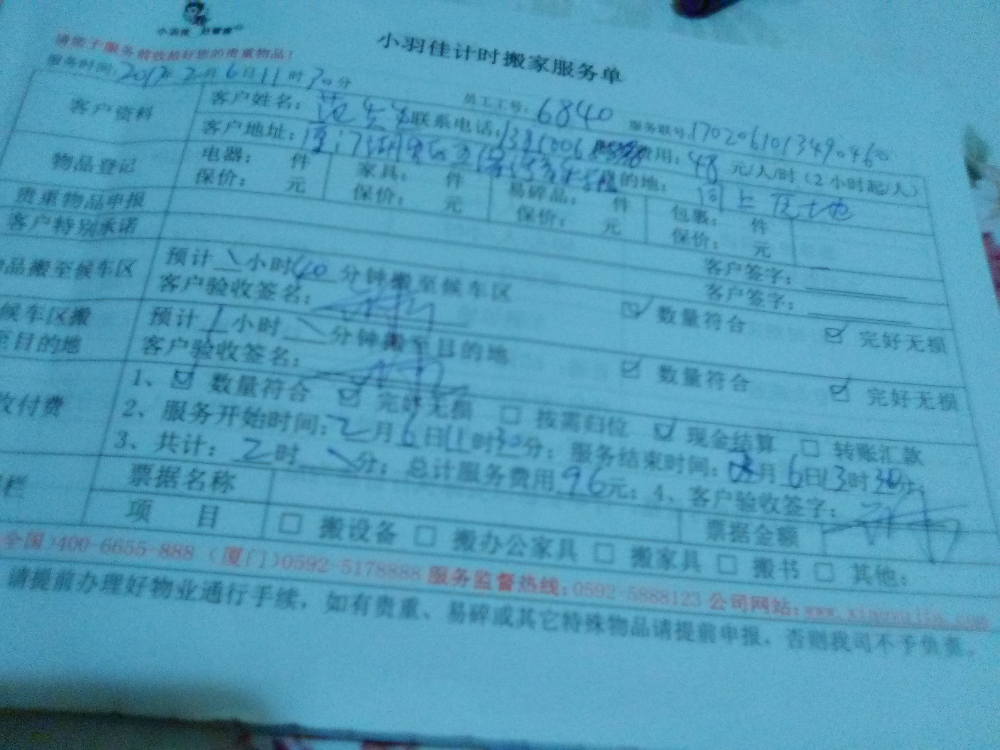 小羽佳计时搬家服务单
请您于服务前收拾好您的贵重物品！
服务时间：2017年2月6日11时30分 员工工号：6840 服务联号：
客户资料 客户姓名： 联系电话： 费用：48元/人/时（2小时起/人）
客户地址： 目的地：同上
物品登记 电器： 件 家具： 件 易碎品： 件 包裹： 件
保价： 元 保价： 元 保价： 元 保价： 元
贵重物品申报 客户签字：
客户特别承诺 客户签字：
品搬至候车区 预计\小时40分钟搬至候车区
客户验收签名： ☑ 数量符合 ☑ 完好无损
候车区搬 预计1小时\分钟搬至目的地
至目的地 客户验收签名： ☑ 数量符合 ☑ 完好无损
收付费 1、☑ 数量符合 ☑ 完好无损 □ 按需归位 ☑ 现金结算 □ 转账汇款
2、服务开始时间：2月6日11时30分；服务结束时间：2月6日13时30分；
3、共计：2时\分；总计服务费用96元；4、客户验收签字：
栏 票据名称 票据金额
项 目 □ 搬设备 □ 搬办公家具 □ 搬家具 □ 搬书 □ 其他：
全国)400-6655-888 (厦门)0592-5178888 服务监督热线：0592-5888123 公司网站：
请提前办理好物业通行手续，如有贵重、易碎或其它特殊物品请提前申报，否则我司不予负责。